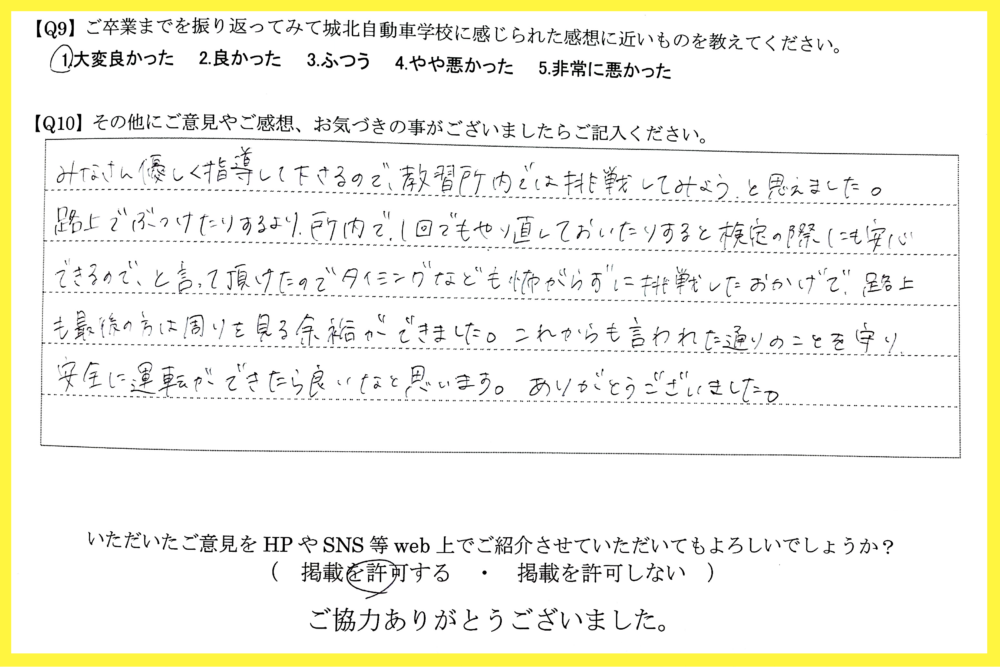 【Q9】ご卒業までを振り返ってみて城北自動車学校に感じられた感想に近いものを教えてください。
1.大変良かった 2.良かった 3.ふつう 4.やや悪かった 5.非常に悪かった
【Q10】その他にご意見やご感想、お気づきの事がございましたらご記入ください。
みなさん優しく指導して下さるので、教習所内では挑戦してみよう、と思えました。
路上でぶつけたりするより、所内で、1回でもやり直しておいたりすると検定の際にも安心
できるので、と言って頂けたのでタイミングなども怖がらずに挑戦したおかげで、路上
も最後の方は周りを見る余裕ができました。これからも言われた通りのことを守り、
安全に運転ができたら良いなと思います。ありがとうございました。
いただいたご意見をHPやSNS等web上でご紹介させていただいてもよろしいでしょうか?
( 掲載を許可する ・ 掲載を許可しない )
ご協力ありがとうございました。